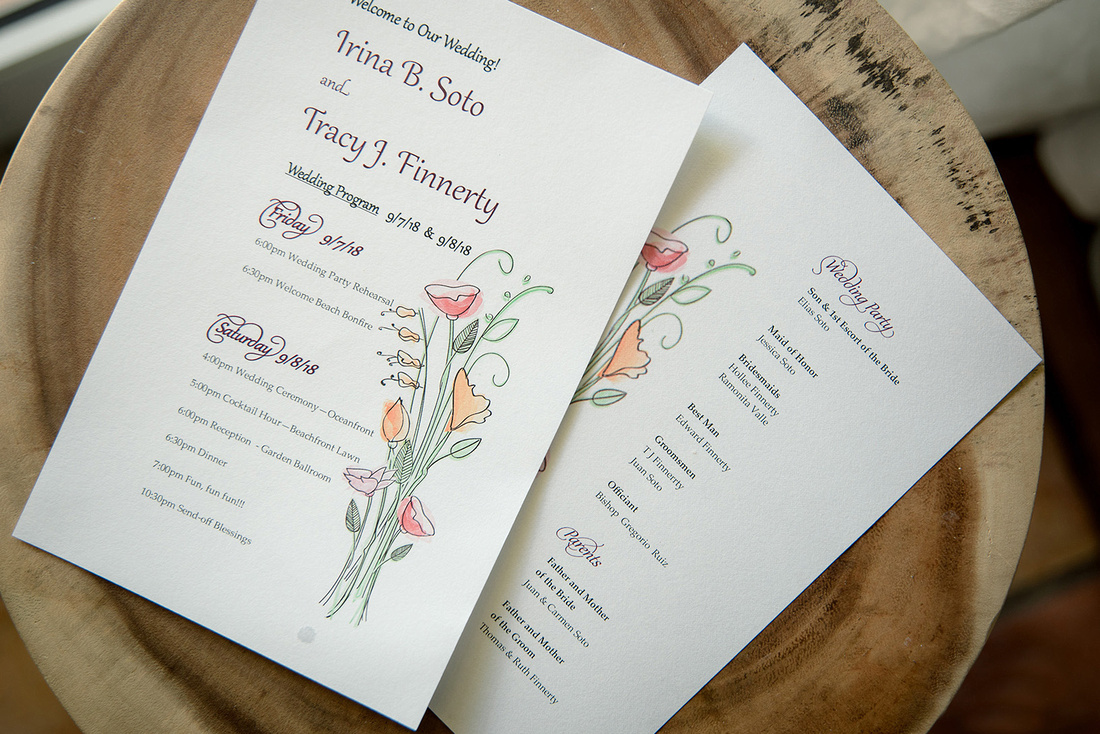 Welcome to Our Wedding!
Irina B. Soto
and
Tracy J. Finnerty
Wedding Program 9/7/18 & 9/8/18
Friday 9/7/18
6:00pm Wedding Party Rehearsal
6:30pm Welcome Beach Bonfire
Saturday 9/8/18
4:00pm Wedding Ceremony—Oceanfront
5:00pm Cocktail Hour—Beachfront Lawn
6:00pm Reception - Garden Ballroom
6:30pm Dinner
7:00pm Fun, fun fun!!!
10:30pm Send-off Blessings
Wedding Party
Son & 1st Escort of the Bride
Elias Soto
Maid of Honor
Jessica Soto
Bridesmaids
Hollee Finnerty
Ramonita Valle
Best Man
Edward Finnerty
Groomsmen
T J Finnerty
Juan Soto
Officiant
Bishop Gregorio Ruiz
Parents
Father and Mother
of the Bride
Juan & Carmen Soto
Father and Mother
of the Groom
Thomas & Ruth Finnerty